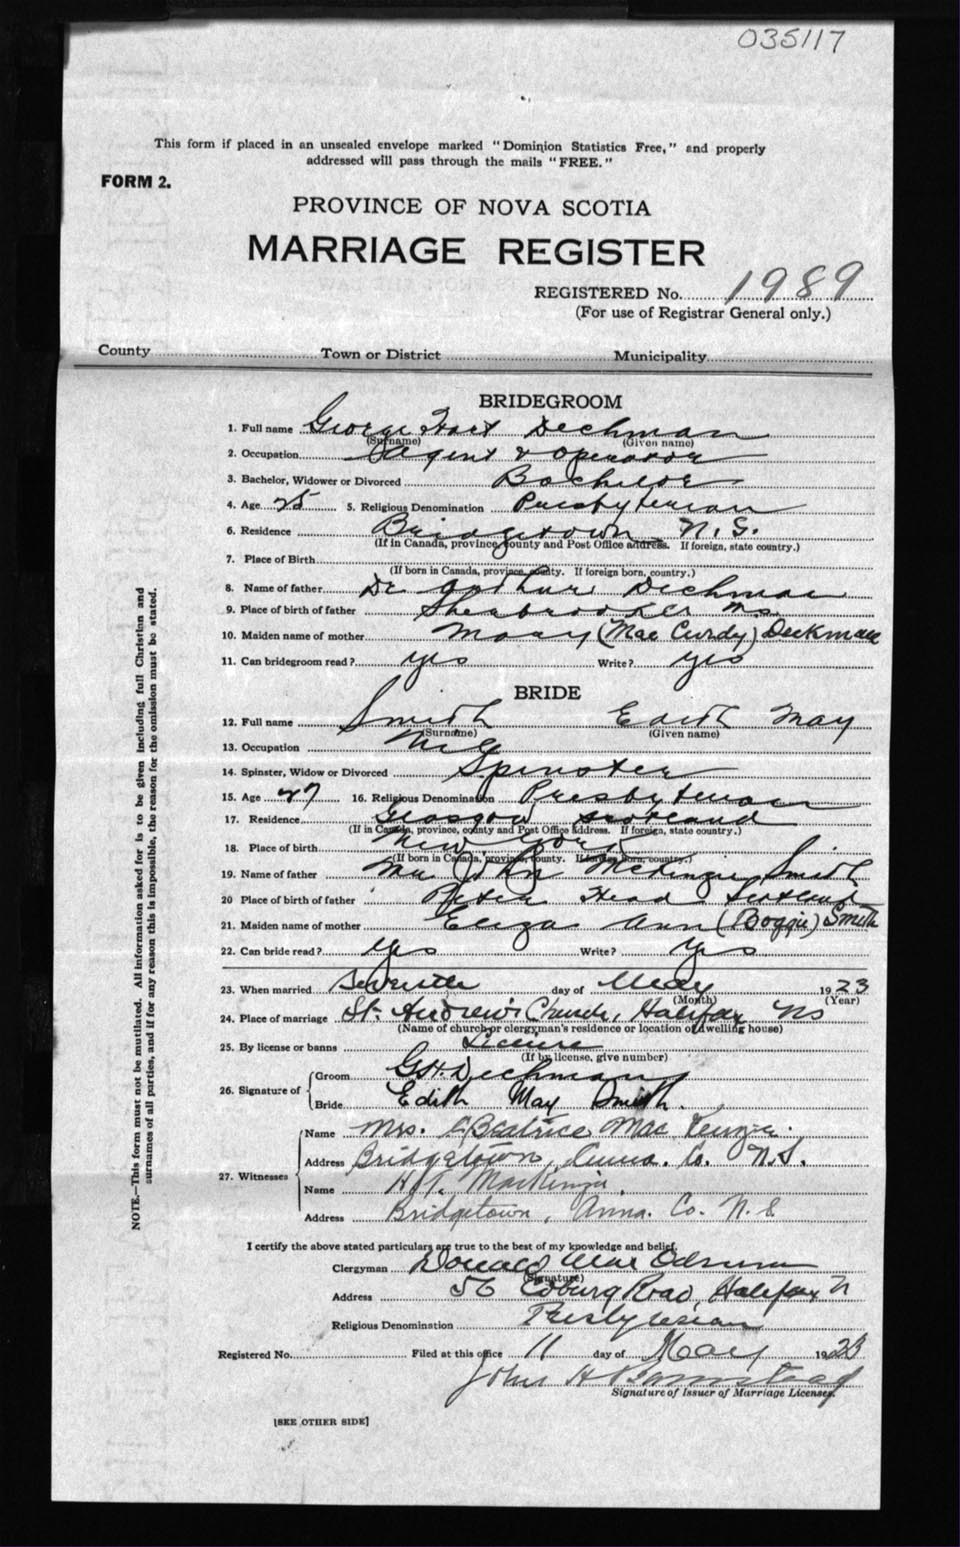 035117
This form if placed in an unsealed envelope marked "Dominion Statistics Free," and properly
addressed will pass through the mails "FREE."
FORM 2.
PROVINCE OF NOVA SCOTIA
MARRIAGE REGISTER
REGISTERED No. 1989
(For use of Registrar General only.)
County Town or District Municipality
BRIDEGROOM
1. Full name George Hart Dechman
(Surname) (Given name)
2. Occupation Agent & Operator
3. Bachelor, Widower or Divorced Bachelor
4. Age 25 5. Religious Denomination Presbyterian
6. Residence Bridgetown N.S.
(If in Canada, province, county and Post Office address. If foreign, state country.)
7. Place of Birth
(If born in Canada, province, county. If foreign born, country.)
8. Name of father Dr Arthur Dechman
9. Place of birth of father Sherbrooke N.S.
10. Maiden name of mother Mary (MacCurdy) Deckman
11. Can bridegroom read? yes Write? yes
BRIDE
12. Full name Smith Edith May
(Surname) (Given name)
13. Occupation
14. Spinster, Widow or Divorced Spinster
15. Age 27 16. Religious Denomination Presbyterian
17. Residence Glasgow Scotland
(If in Canada, province, county and Post Office address. If foreign, state country.)
18. Place of birth New York
(If born in Canada, province, county. If foreign born, country.)
19. Name of father John McKenzie Smith
20 Place of birth of father Peter Head Scotland
21. Maiden name of mother Eliza Ann (Boggie) Smith
22. Can bride read? yes Write? yes
23. When married Seventh day of May 1923
(Month) (Year)
24. Place of marriage St. Andrew's Church, Halifax NS
(Name of church or clergyman's residence or location of dwelling house)
25. By license or banns License
(If by license, give number)
26. Signature of Groom G.H. Dechman
Bride Edith May Smith.
27. Witnesses Name Mrs. Beatrice MacKenzie.
Address Bridgetown, Anna. Co. N.S.
Name H.T. MacKenzie.
Address Bridgetown, Anna. Co. N.S
I certify the above stated particulars are true to the best of my knowledge and belief.
Clergyman Donald MacOdrum
(Signature)
Address 56 Coburg Road, Halifax N
Religious Denomination Presbyterian
Registered No. Filed at this office 11 day of May 1923
John H Barnstead
Signature of Issuer of Marriage Licenses.
[SEE OTHER SIDE]
NOTE.—This form must not be mutilated. All information asked for is to be given including full Christian and
surnames of all parties, and if for any reason this is impossible, the reason for the omission must be stated.